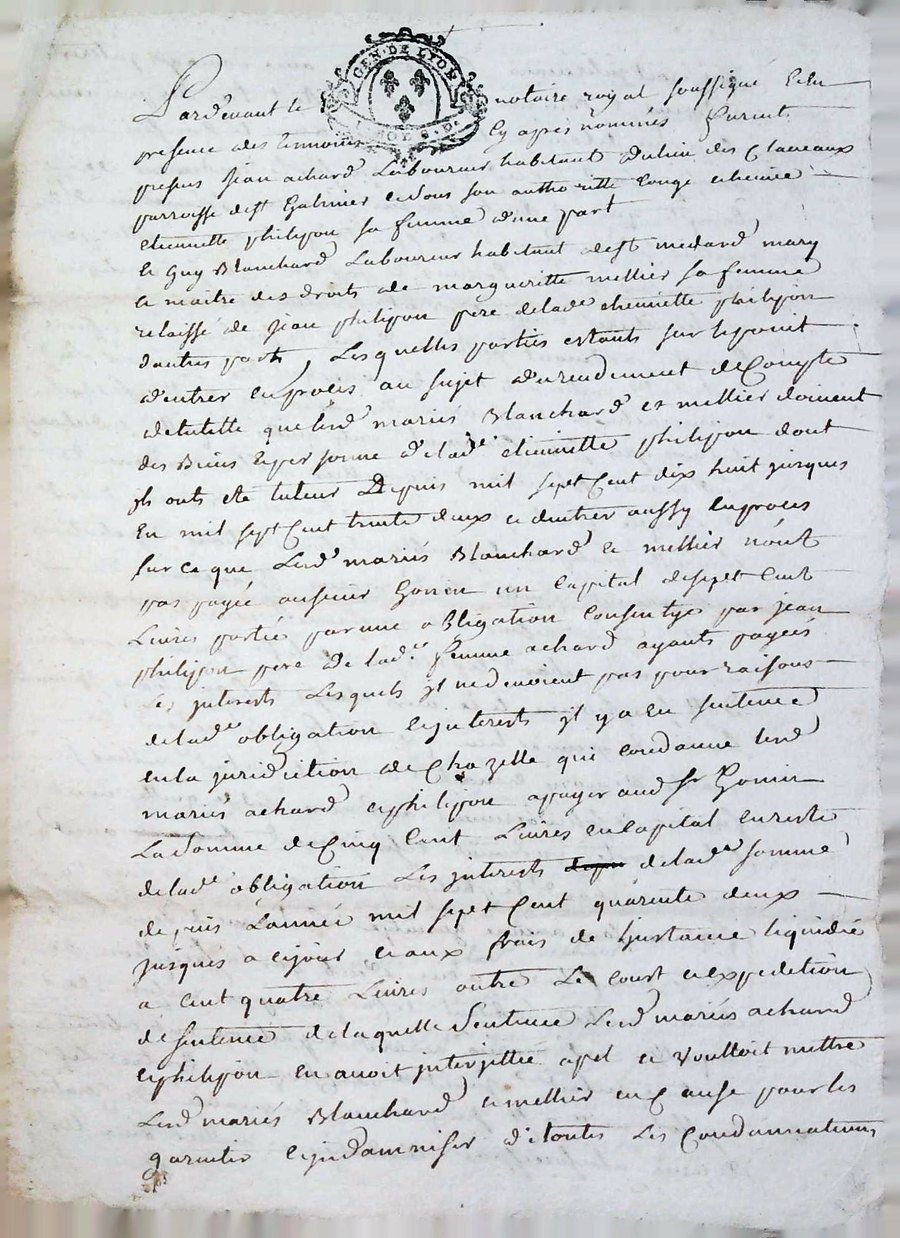 GEN. DE LYON
Pardevant le notaire royal soussigné et en
presence des temoins cy apres nommés furent
presens Jean achard Laboureur habitant du lieu des Claveaux
parroisse de st Galmier et sous son authoritté Longe
etiennette philipon sa femme d'une part
et Guy Blanchard Laboureur habitant de st medard mary
et maitre des droits de margueritte mellier sa femme
relaisse de Jean philipon pere de lade etiennette philipon
d'autres part, Lesquelles parties estants sur le point
d'entrer en proces au sujet d'un rendement de Compte
de tutelle que lesd mariés Blanchard et mellier doivent
des Biens et personne de lade etiennette philipon dont
ils onts eté tuteur Depuis mil sept Cent dix huit jusques
en mil sept Cent trente deux et d'entrer aussy en proces
sur ce que Lesd mariés Blanchard et mellier n'ont
pas payée au sieur Gonin un Capital de sept Cent
Livres portée par une obligation Consentye par jean
philipon pere De lade femme achard ayants payées
les interests Lesquels ils ne devoient pas pour raisons
de lade obligation et interests il y a eu sentence
en la juridiction de Chazelle qui condanne lesd
mariés achard et philipon a payer aud sr Gonin
La somme de Cinq Cent Livres en Capital en reste
de lade obligation Les interests de lade somme
depuis L'année mil sept Cent quarente deux
jusques a ce jour et aux frais de Linstance liquidée
a Cent quatre Livres outre Le Cout et expedition
de sentence de laquelle Sentence Lesd mariés achard
et philipon en avoit interjettée apel et Voulloit mettre
Lesd mariés Blanchard et mellier en Cause pour les
garentir et indamniser de toutes Les Condamnations